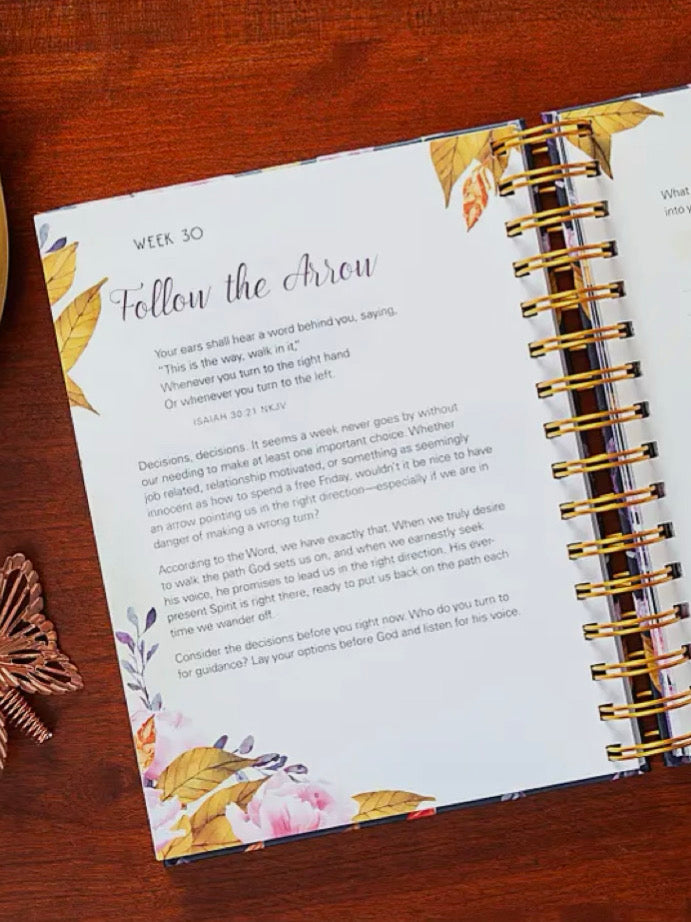 WEEK 30
Follow the Arrow
Your ears shall hear a word behind you, saying,
"This is the way, walk in it,"
Whenever you turn to the right hand
Or whenever you turn to the left.
ISAIAH 30:21 NKJV
Decisions, decisions. It seems a week never goes by without
our needing to make at least one important choice. Whether
job related, relationship motivated, or something as seemingly
innocent as how to spend a free Friday, wouldn't it be nice to have
an arrow pointing us in the right direction—especially if we are in
danger of making a wrong turn?
According to the Word, we have exactly that. When we truly desire
to walk the path God sets us on, and when we earnestly seek
his voice, he promises to lead us in the right direction. His ever-
present Spirit is right there, ready to put us back on the path each
time we wander off.
Consider the decisions before you right now. Who do you turn to
for guidance? Lay your options before God and listen for his voice.
What
into y